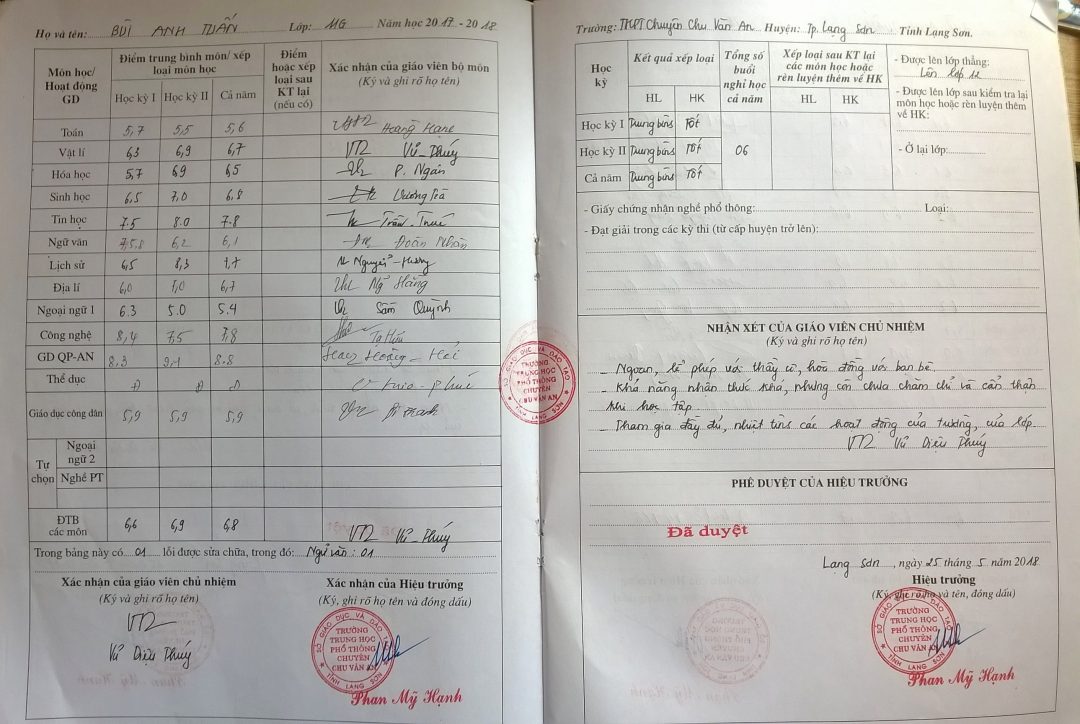 Họ và tên: BÙI ANH TUẤN Lớp: 11G Năm học 2017 - 2018
Môn học/ Hoạt động GD
Điểm trung bình môn/ xếp loại môn học
Học kỳ I Học kỳ II Cả năm
Điểm hoặc xếp loại sau KT lại (nếu có)
Xác nhận của giáo viên bộ môn
(Ký và ghi rõ họ tên)
Toán 5,7 5,5 5,6 Hoàng Hạnh
Vật lí 6,3 6,9 6,7 Vũ Thúy
Hóa học 5,7 6,9 6,5 P. Ngân
Sinh học 6,5 7,0 6,8
Tin học 7.5 8.0 7.8 Trần
Ngữ văn 5,8 6,2 6,1 Đoàn Nhàn
Lịch sử 6,5 8,3 7,7 Nguyễn Hương
Địa lí 6,0 7,0 6,7 Hằng
Ngoại ngữ 1 6.3 5.0 5.4 Sầm Quỳnh
Công nghệ 8,4 7,5 7,8 Tạ
GD QP-AN 8,3 9,1 8,8 Hoàng Hải
Thể dục Đ Đ Đ
Giáo dục công dân 5,9 5,9 5,9
Tự chọn
Ngoại ngữ 2
Nghề PT
ĐTB các môn 6,6 6,9 6,8 Vũ Thúy
Trong bảng này có 01 lỗi được sửa chữa, trong đó: Ngữ văn: 01
Xác nhận của giáo viên chủ nhiệm
(Ký và ghi rõ họ tên)
Vũ Diệu Thúy
Xác nhận của Hiệu trưởng
(Ký, ghi rõ họ tên và đóng dấu)
SỞ GIÁO DỤC VÀ ĐÀO TẠO
TRƯỜNG
TRUNG HỌC
PHỔ THÔNG
CHUYÊN
CHU VĂN AN
TỈNH LẠNG SƠN
Phan Mỹ Hạnh
SỞ GIÁO DỤC VÀ ĐÀO TẠO
TRƯỜNG
TRUNG HỌC
PHỔ THÔNG
CHUYÊN
CHU VĂN AN
TỈNH LẠNG SƠN
Trường: THPT Chuyên Chu Văn An Huyện: Tp. Lạng Sơn Tỉnh Lạng Sơn.
Học kỳ
Kết quả xếp loại
HL HK
Tổng số buổi nghỉ học cả năm
Xếp loại sau KT lại các môn học hoặc rèn luyện thêm về HK
HL HK
Học kỳ I Trung bình Tốt
Học kỳ II Trung bình Tốt 06
Cả năm Trung bình Tốt
- Được lên lớp thẳng:
Lên lớp 12
- Được lên lớp sau kiểm tra lại
môn học hoặc rèn luyện thêm
về HK:
- Ở lại lớp:
- Giấy chứng nhận nghề phổ thông: Loại:
- Đạt giải trong các kỳ thi (từ cấp huyện trở lên):
NHẬN XÉT CỦA GIÁO VIÊN CHỦ NHIỆM
(Ký và ghi rõ họ tên)
- Ngoan, lễ phép với thầy cô, hòa đồng với bạn bè.
- Khả năng nhận thức khá, nhưng còn chưa chăm chỉ và cẩn thận
khi học tập
- Tham gia đầy đủ, nhiệt tình các hoạt động của trường, của lớp.
Vũ Diệu Thúy
PHÊ DUYỆT CỦA HIỆU TRƯỞNG
Đã duyệt
Lạng Sơn, ngày 25 tháng 5 năm 2018
Hiệu trưởng
(Ký, ghi rõ họ và tên, đóng dấu)
SỞ GIÁO DỤC VÀ ĐÀO TẠO
TRƯỜNG
TRUNG HỌC
PHỔ THÔNG
CHUYÊN
CHU VĂN AN
TỈNH LẠNG SƠN
Phan Mỹ Hạnh